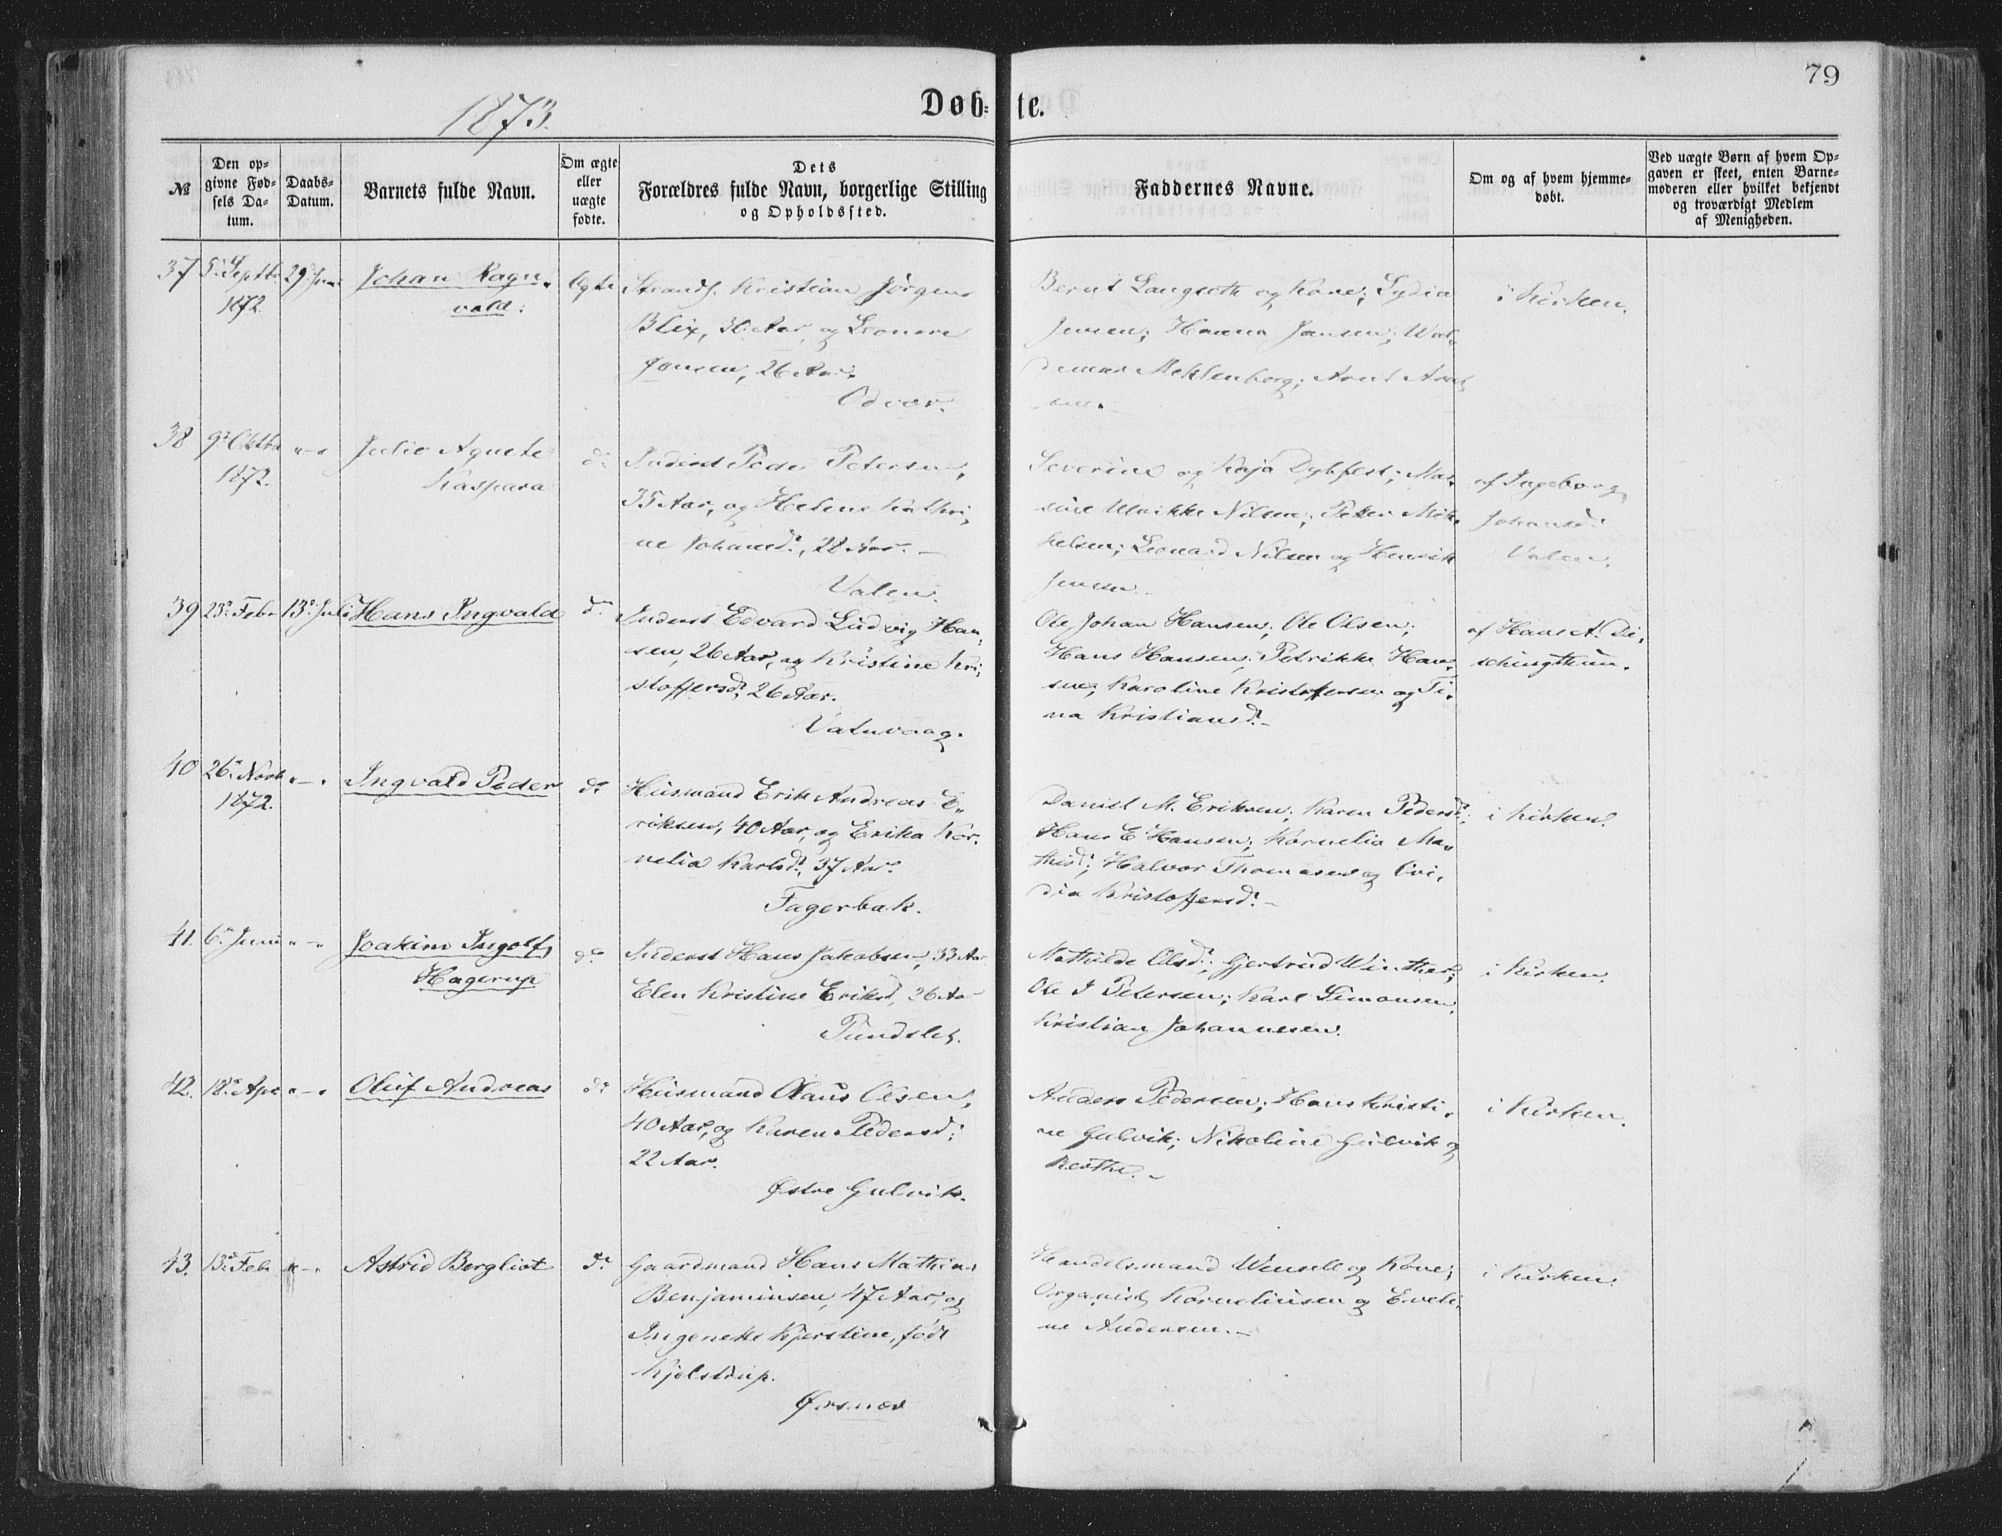 79
1873.
Døbte.
№
Den op-
givne Fød-
sels Da-
tum.
Daabs-
Datum.
Barnets fulde Navn.
Om ægte
eller
uægte
fødte.
Dets
Forældres fulde Navn, borgerlige Stilling
og Opholdssted.
Faddernes Navne.
Om og af hvem hjemme-
døbt.
Ved uægte Børn af hvem Op-
gaven er skeet, enten Barne-
moderen eller hvilket bekjendt
og troværdigt Medlem
af Menigheden.
37
5. Septbr
1872
29 Juni
Johan Ragn-
vald.
Ægte
Strands. Kristian Jørgen
Blix, 30 Aar, og Leonore
Jensen, 26 Aar.
Odvær.
Bernt Langseth og Kone; Lydia
Jensen; Hanna Jansen; Wal-
demar Mehlenborg; Arnt
i Kirken.
38
9de Oktbr
1872.
"–"
Julie Agnete
Kaspara
do
Inderst Peder Petersen,
35 Aar, og Helene Kathri-
ne Johansdr, 28 Aar. –
Valen.
Severine og Kaja Dybfest; Mar-
Ulrikke Nilsen; Peter Mik-
kelsen; Leonard Nilsen og Henrik
Jensen.
af Ingeborg
Johansdr
Valen.
39
23de Febr
13de Juli
Hans Ingvald
do
Inderst Edvard Ludvig Han-
sen, 26 Aar, og Kristine Kri-
stoffersdr, 26 Aar.
Vatnvaag.
Ole Johan Hansen; Ole Olsen;
Hans Hansen; Petrikke Han-
sen; Karoline Kristoffersen og Ti-
na Kristiansdr –
af Hans A. Di-
schingthun.
40
26de Novb
1872.
"–"
Ingvald Peder
do
Husmand Erik Andreas E-
riksen, 40 Aar, og Erika Kor-
nelia Karlsdr, 37 Aar.
Fagerbak.
Daniel M. Eriksen; Karen Pedersdr;
Hans E Hansen; Kornelia Ma-
thisdr; Halvor Thomasen og Ovi-
dia Kristoffersdr –
i Kirken.
41.
6te Juni
"–"
Joakim Ingolf
Hagerup
do
Inderst Hans Jakobsen, 33 Aar
Elen Kristine Eriksdr, 26 Aar
Pundslet.
Mathilde Olsdr; Gjertrud Winther;
Ole J Petersen; Karl Simonsen,
Kristian Johannesen.
i Kirken.
42.
18de Apr
"–"
Oluf Andreas
do
Husmand Olaus Olsen,
40 Aar, og Karen Pedersdr,
22 Aar.
Østre Gulvik.
Anders Pedersen; Hans Kristi-
Gulvik; Nikoline Gulvik og
i Kirken.
43.
13de Feb
"–"
Astrid Bergliot
do
Gaardmand Hans Mathias
Benjaminsen, 47 Aar, og
Ingeneke Kjerstine, født
Kjelstrup.
Ørsnæs
Handelsmand Wensell og Kone;
Organist Korneliusen og Eveli-
ne Andersen. –
i Kirken.